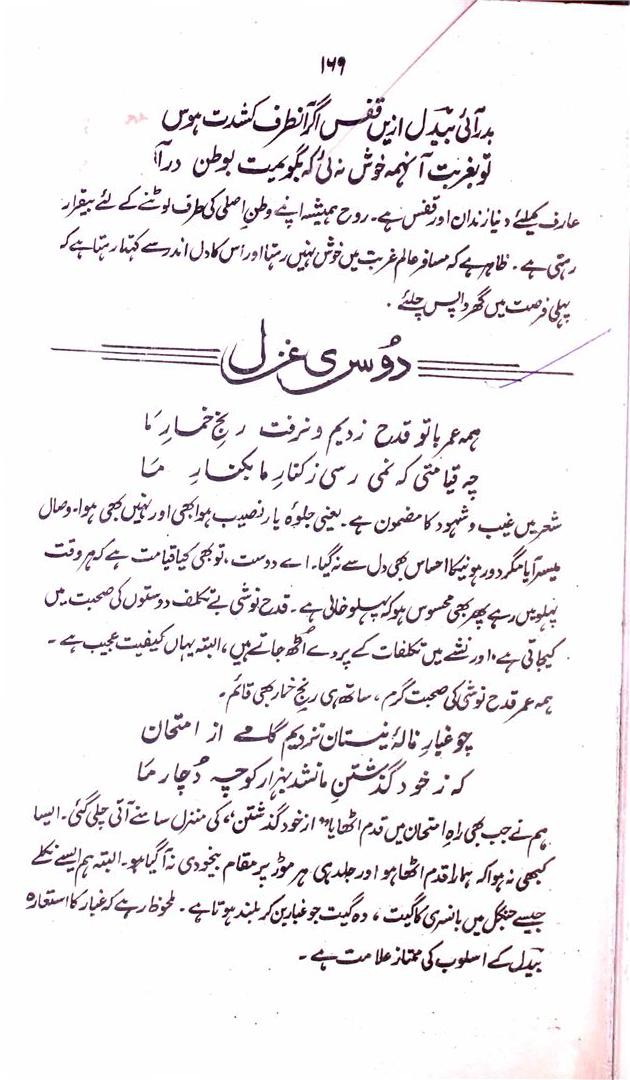 ۱۶۹
بدر آئی بیدل ازیں قفس اگر آنطرف کشدت ہوس
تو بغربت آنہمہ خوش نہ ئی کہ بگویمت بوطن درآ
عارف کیلئے دنیا زندان اور قفس ہے۔ روح ہمیشہ اپنے وطنِ اصلی کی طرف لوٹنے کے لئے بیقرار
رہتی ہے۔ ظاہر ہے کہ مسافر عالمِ غربت میں خوش نہیں رہتا اور اس کا دل اندر سے کہتا رہتا ہے کہ
پہلی فرصت میں گھر واپس چلئے۔
دُوسری غزل
ہمہ عمر با تو قدح زدیم و نرفت رنجِ خمارِ مَا
چہ قیامتی کہ نمی رسی ز کنارِ ما بکنارِ مَا
شعر میں غیب و شہود کا مضمون ہے۔ یعنی جلوۂ یار نصیب ہوا بھی اور نہیں بھی ہوا۔ وصال
میسر آیا مگر دور ہونیکا احساس بھی دل سے نہ گیا۔ اے دوست، تو بھی کیا قیامت ہے کہ ہر وقت
پہلو میں رہے پھر بھی محسوس ہو کہ پہلو خالی ہے۔ قدح نوشی بے تکلف دوستوں کی صحبت میں
کیجاتی ہے، اور نشے میں تکلفات کے پردے اُٹھ جاتے ہیں، البتہ یہاں کیفیت عجیب ہے۔
ہمہ عمر قدح نوشی کی صحبت گرم، ساتھ ہی رنجِ خمار بھی قائم۔
چو غبارِ نالۂ نیستان نزدیم گامے از امتحان
کہ ز خود گذشتنِ ما نشد بہزار کوچہ دُچار مَا
ہم نے جب بھی راہِ امتحان میں قدم اٹھایا، "از خود گذشتن" کی منزل سامنے آتی چلی گئی۔ ایسا
کبھی نہ ہوا کہ ہمارا قدم اٹھا ہو اور جلد ہی ہر موڑ پر مقام بیخودی نہ آگیا ہو۔ البتہ ہم ایسے نکلے
جیسے جنگل میں بانسری کا گیت، وہ گیت جو غبار بن کر بلند ہوتا ہے۔ ملحوظ رہے کہ غبار کا استعارہ
بیدل کے اسلوب کی ممتاز علامت ہے۔